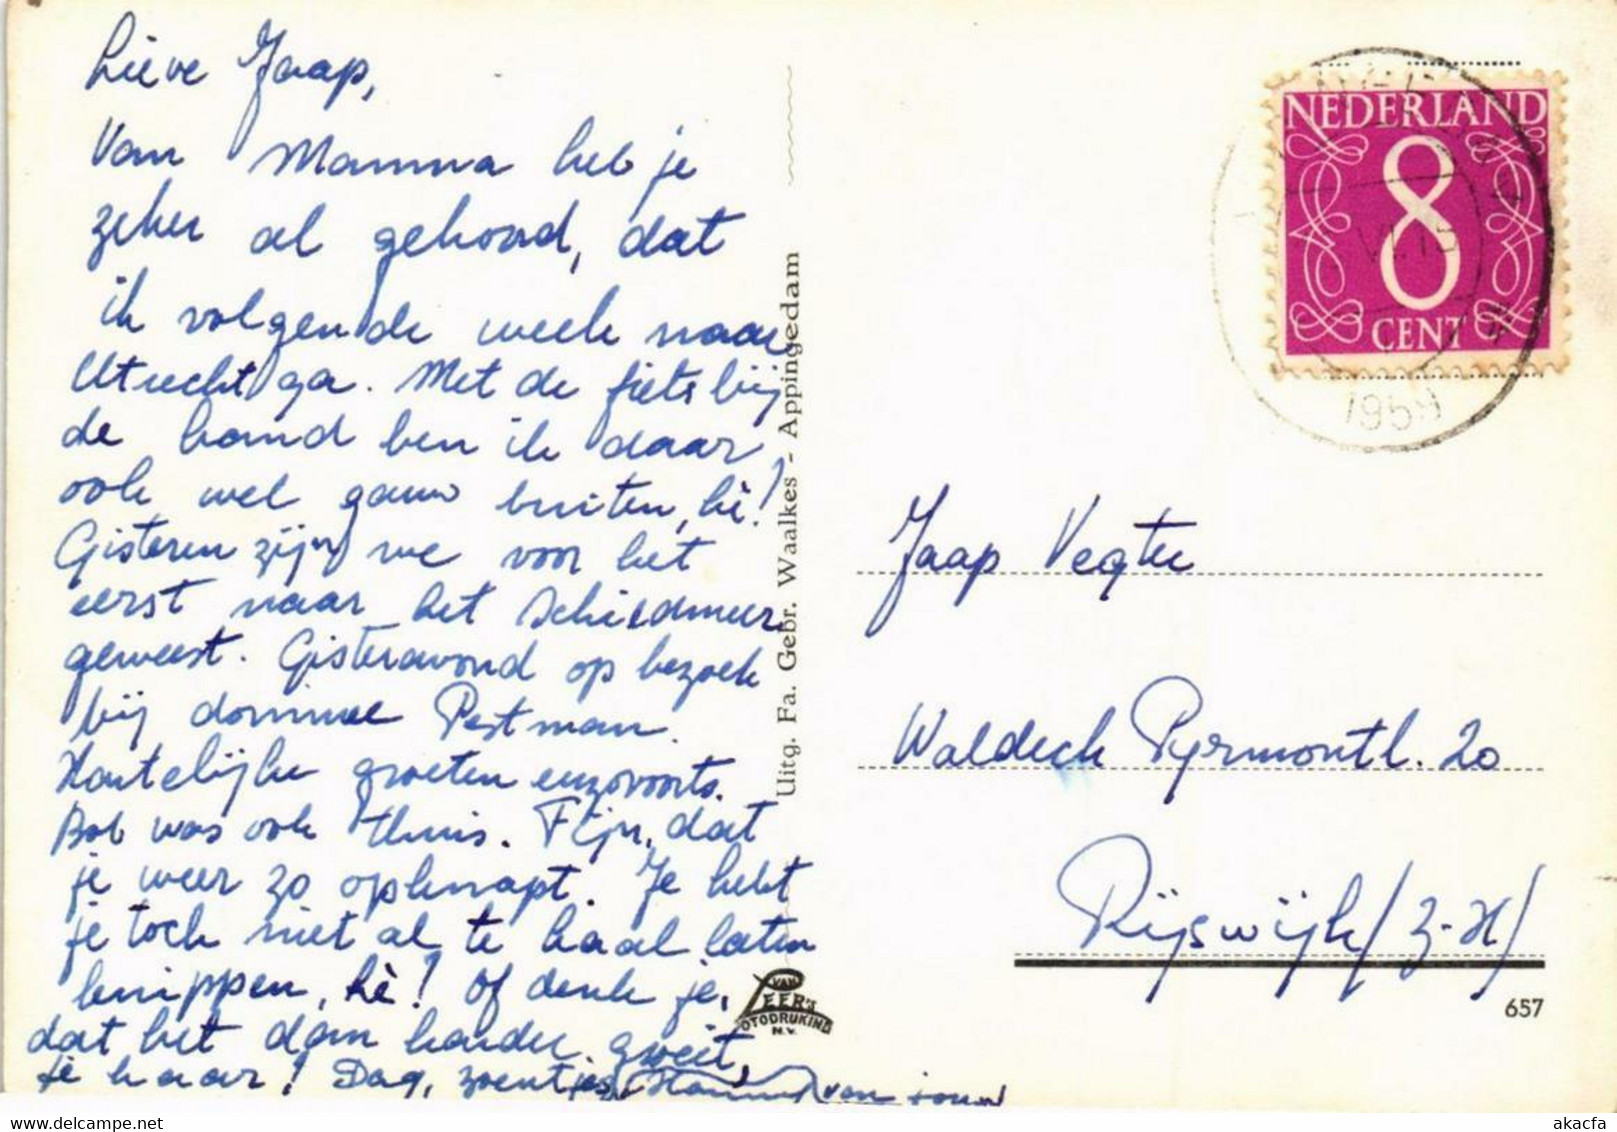 Lieve Jaap,
Van Mamma heb je
zeker al gehoord, dat
ik volgende week naar
Utrecht ga. Met de fiets bij
de hand ben ik daar
ook wel gauw buiten, hè!
Gisteren zijn we voor het
eerst naar het Schildmeer
geweest. Gisteravond op bezoek
bij dominee Postman.
Hartelijke groeten enzovoorts.
Bob was ook thuis. Fijn, dat
je weer zo opknapt. Je hebt
je toch niet al te kaal laten
knippen, hè! Of denk je,
dat het dan harder groeit,
je haar! Dag, zoentjes, van jouw
Uitg. Fa. Gebr. Waalkes - Appingedam
VAN
LEER'S
FOTODRUKIND
N.V.
NEDERLAND
8
CENT
VI.15
1959
Jaap Vegter
Waldeck Pyrmontl. 20
Rijswijk (Z-H)
657
akacfa.com